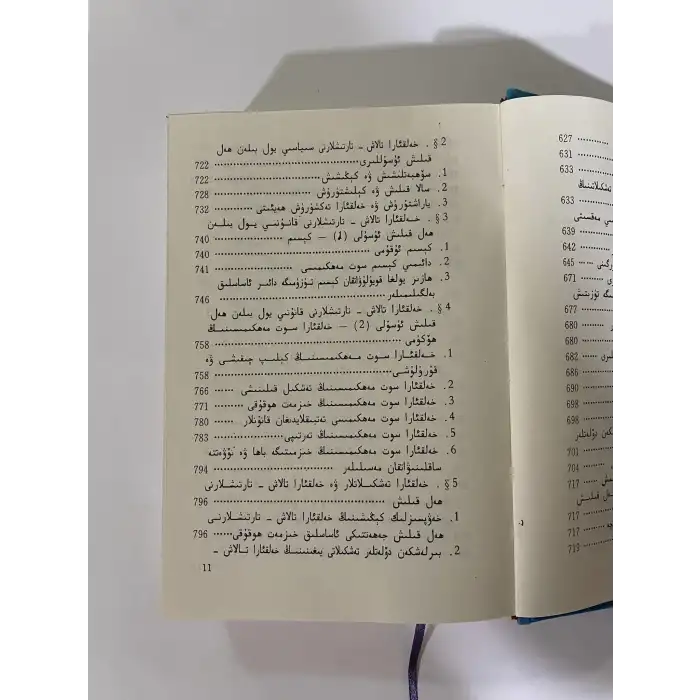 §2 . خەلقئارا تالاش - تارتىشلارنى سىياسىي يول بىلەن ھەل
قىلىش ئۇسۇللىرى ...................... 722
1. سۆھبەتلىشىش ۋە كېڭىشىش ...................... 722
2. سالا قىلىش ۋە كېلىشتۈرۈش ...................... 728
3. ياراشتۇرۇش ۋە خەلقئارا تەكشۈرۈش ھەيئىتى ............ 732
§3 . خەلقئارا تالاش - تارتىشلارنى قانۇنىي يول بىلەن
ھەل قىلىش ئۇسۇلى (1) — كېسىم ...................... 740
1. كېسىم ئۇقۇمى ...................... 740
2. دائىمىي كېسىم سوت مەھكىمىسى ...................... 741
3. ھازىر يولغا قويۇلۇۋاتقان كېسىم تۈزۈمىگە دائىر ئاساسلىق
بەلگىلىمىلەر ...................... 746
§4 . خەلقئارا تالاش - تارتىشلارنى قانۇنىي يول بىلەن ھەل
قىلىش ئۇسۇلى (2) — خەلقئارا سوت مەھكىمىسىنىڭ
ھۆكۈمى ...................... 758
1. خەلقئارا سوت مەھكىمىسىنىڭ كېلىپ چىقىشى ۋە
قۇرۇلۇشى ...................... 758
2. خەلقئارا سوت مەھكىمىسىنىڭ تەشكىل قىلىنىشى ...... 766
3. خەلقئارا سوت مەھكىمىسىنىڭ خىزمەت ھوقۇقى ......... 771
4. خەلقئارا سوت مەھكىمىسى تەتبىقلايدىغان قانۇنلار ...... 780
5. خەلقئارا سوت مەھكىمىسىنىڭ تەرتىپى ............... 783
6. خەلقئارا سوت مەھكىمىسىنىڭ خىزمىتىگە باھا ۋە نۆۋەتتە
ساقلىنىۋاتقان مەسىلىلەر ...................... 794
§5 . خەلقئارا تەشكىلاتلار ۋە خەلقئارا تالاش - تارتىشلارنى
ھەل قىلىش ...................... 796
1. خەۋپسىزلىك كېڭىشىنىڭ خەلقئارا تالاش - تارتىشلارنى
ھەل قىلىش جەھەتتىكى ئاساسلىق خىزمەت ھوقۇقى...... 796
2. بىرلەشكەن دۆلەتلەر تەشكىلاتى يىغىنىنىڭ خەلقئارا تالاش -
11
627 ............
631 ............
633 ............
تەشكىلاتىنىڭ
633 ............
مەقسىتى
639 ............
642 ............
645 ......
671 ............
677 ............
680 ............
680 ............
682 ......
686 ............
690 ............
698 ............
698 ............
دۆلەتلەر
701 ............
704 ............
717 ......
ھەل قىلىش
717 ............
717 ............
719 ............